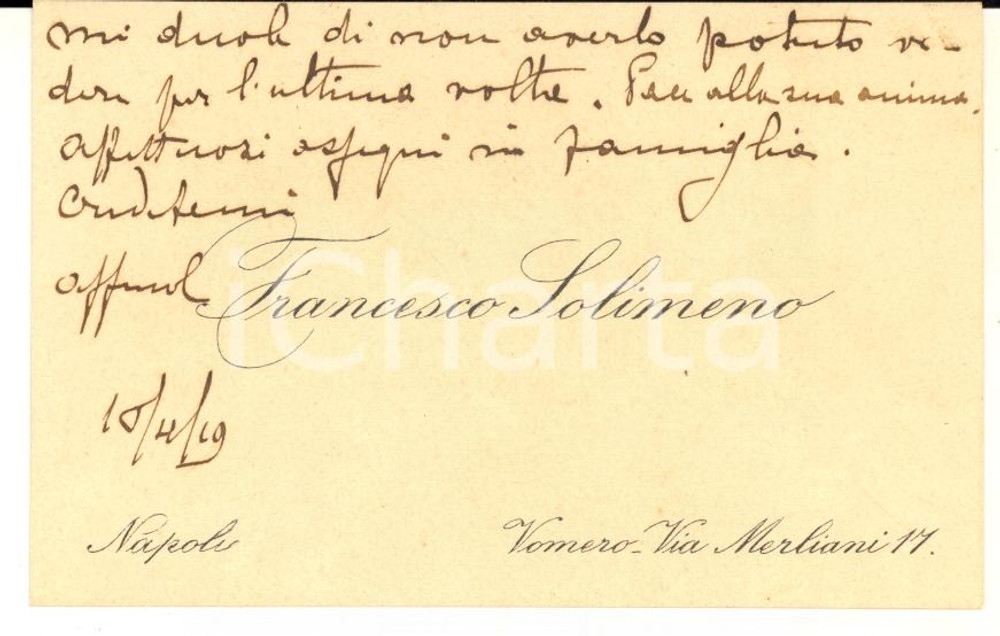 mi duole di non averlo potuto ve-
dere per l'ultima volta. Pace alla sua anima.
Affettuosi ossequi in famiglia.
Credetemi
Francesco Solimeno
iCharta
/4/19
Napoli
Vomero-Via Merliani 17.